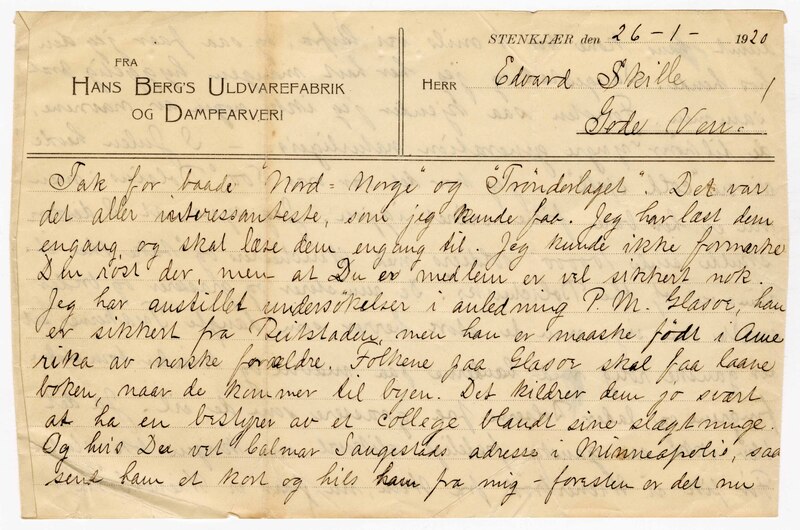 FRA
HANS BERG'S ULDVAREFABRIK
OG DAMPFARVERI
STENKJÆR den 26-1- 1920
HERR Edvard Skille /
Gode Ven.
Tak for baade "Nord=Norge" og "Trönderlaget". Det var
det aller interessanteste, som jeg kunde faa. Jeg har læst dem
engang og skal læse dem engang til. Jeg kunde ikke formærke
Din röst der, men at Du er medlem er vel sikkert nok.
Jeg har anstillet undersökelser i anledning P. M. Glasoe, han
er sikkert fra Beitstaden, men han er maaske født i Ame
rika av norske forældre. Folkene paa Glasoe skal faa laane
boken, naar de kommer til byen. Det kildrer dem jo svært
at ha en bestyrer av et college blandt sine slægtninge.
Og hvis Du vet Calmar Saugestads adresse i Minneapolis, saa
send ham et kort og hils ham fra mig - foresten er det nu